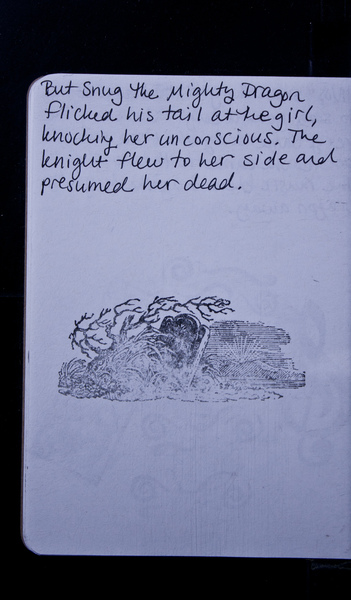 But Snug the Mighty Dragon
flicked his tail at the girl,
knocking her unconscious. The
knight flew to her side and
presumed her dead.